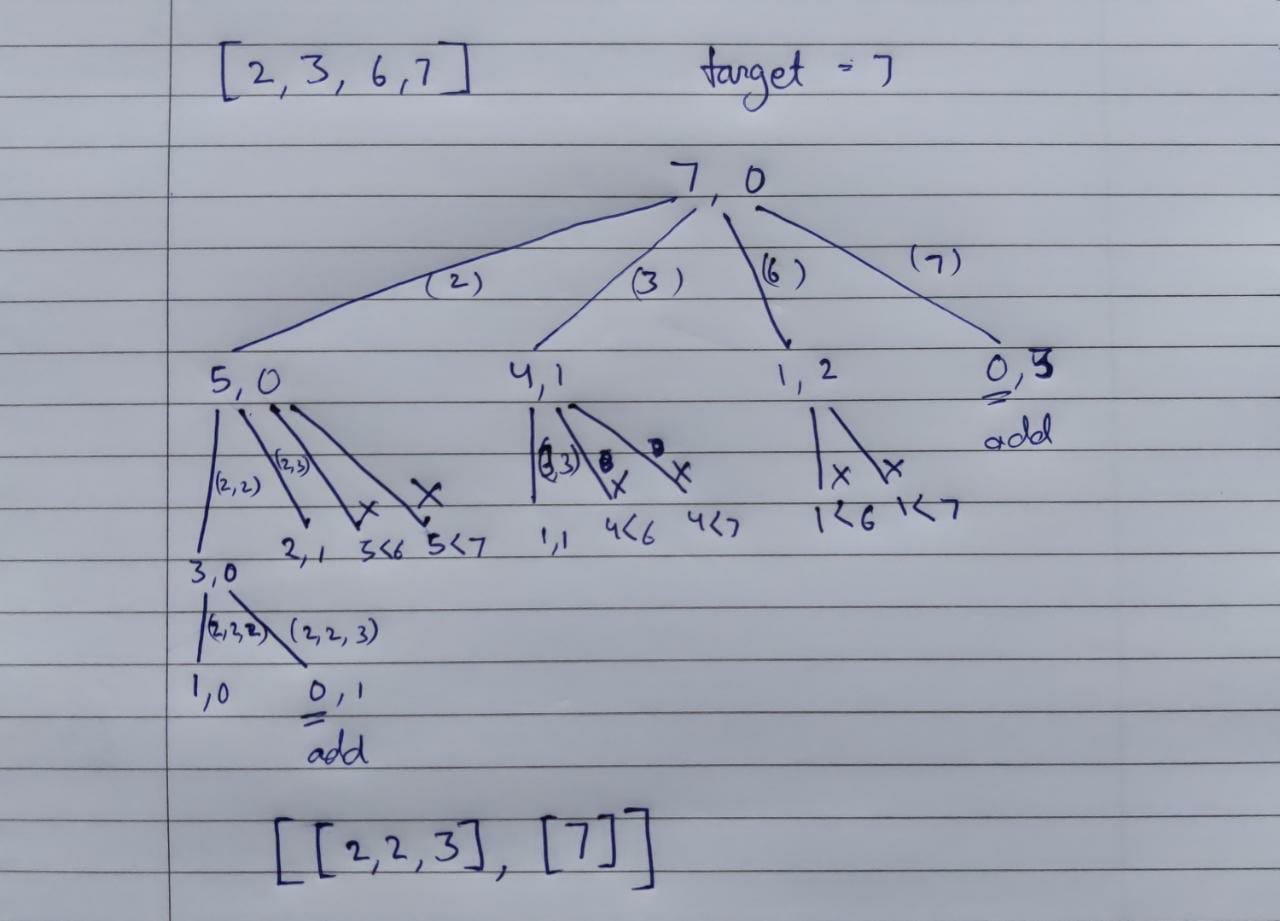 [2, 3, 6, 7] target = 7
7, 0
(2) (3) (6) (7)
5, 0 4, 1 1, 2 0, 3
add
(2,2) (2,3) x x (3,3) x x x x
2, 1 5<6 5<7 1,1 4<6 4<7 1<6 1<7
3,0
(2,2,2) (2,2,3)
1,0 0, 1
add
[[2,2,3], [7]]